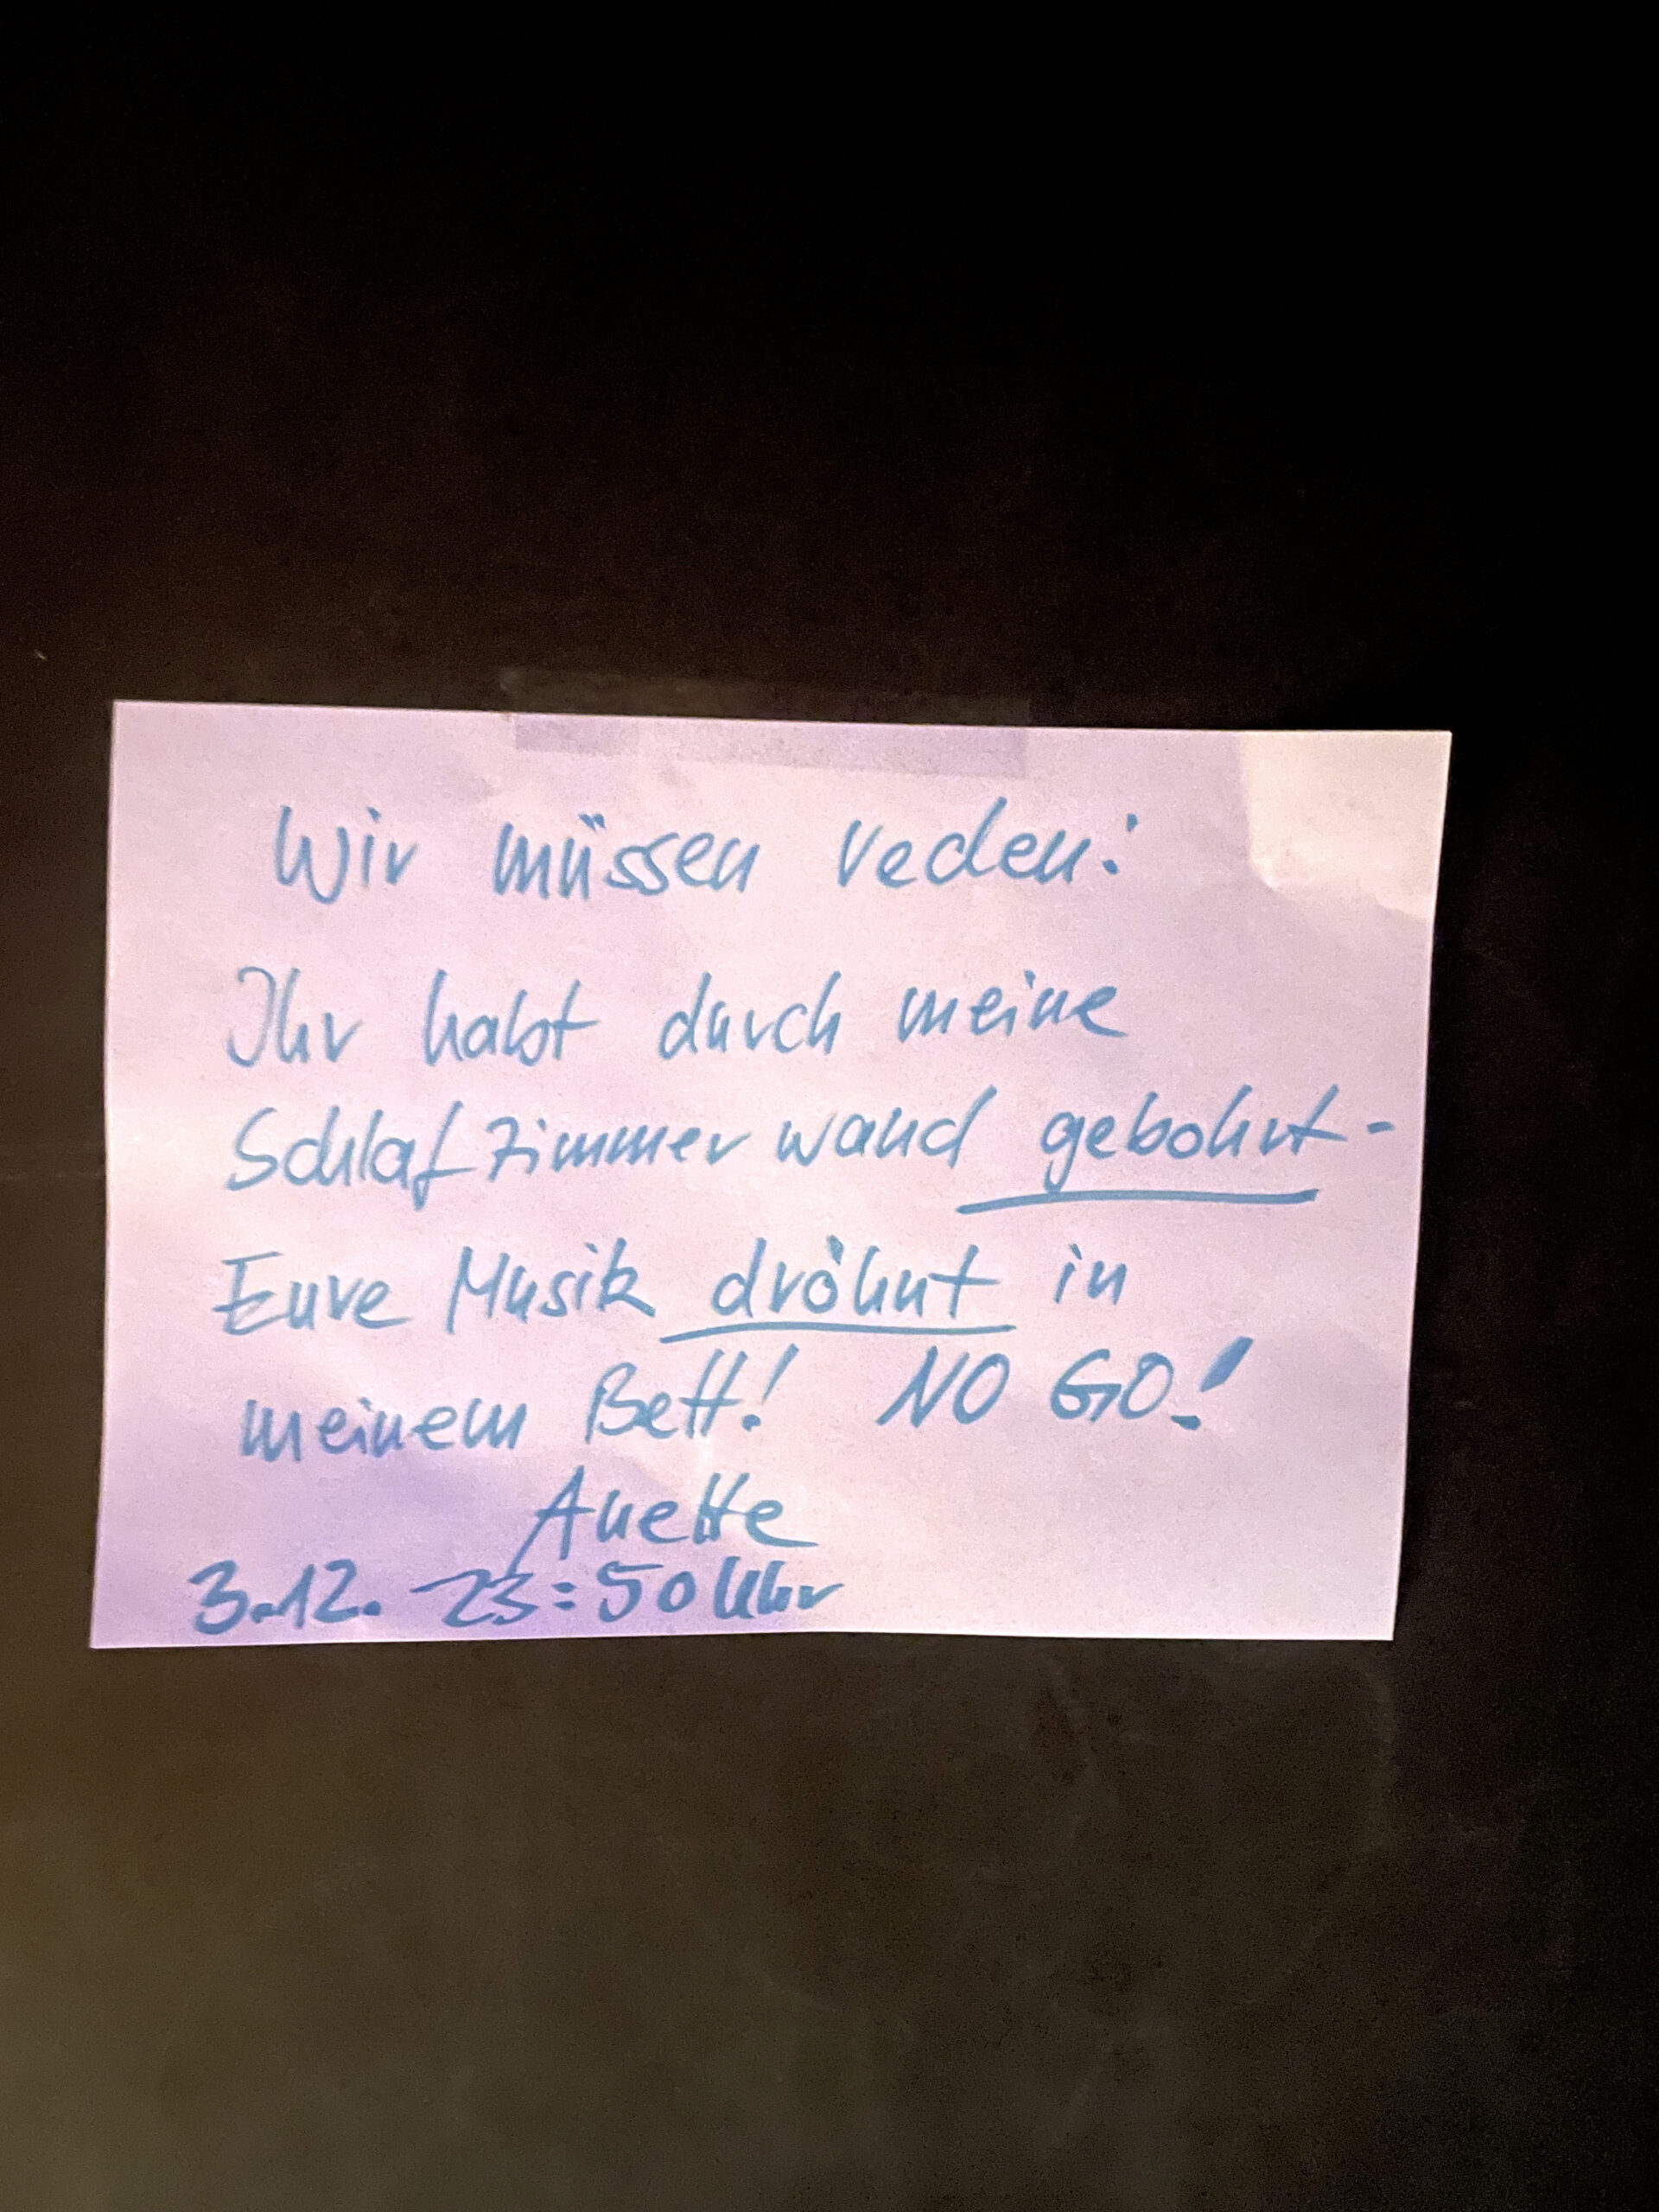 Wir müssen reden:
Ihr habt durch meine
Schlafzimmerwand gebohrt -
Eure Musik dröhnt in
meinem Bett! NO GO!
Anette
3.12. 23:50 Uhr